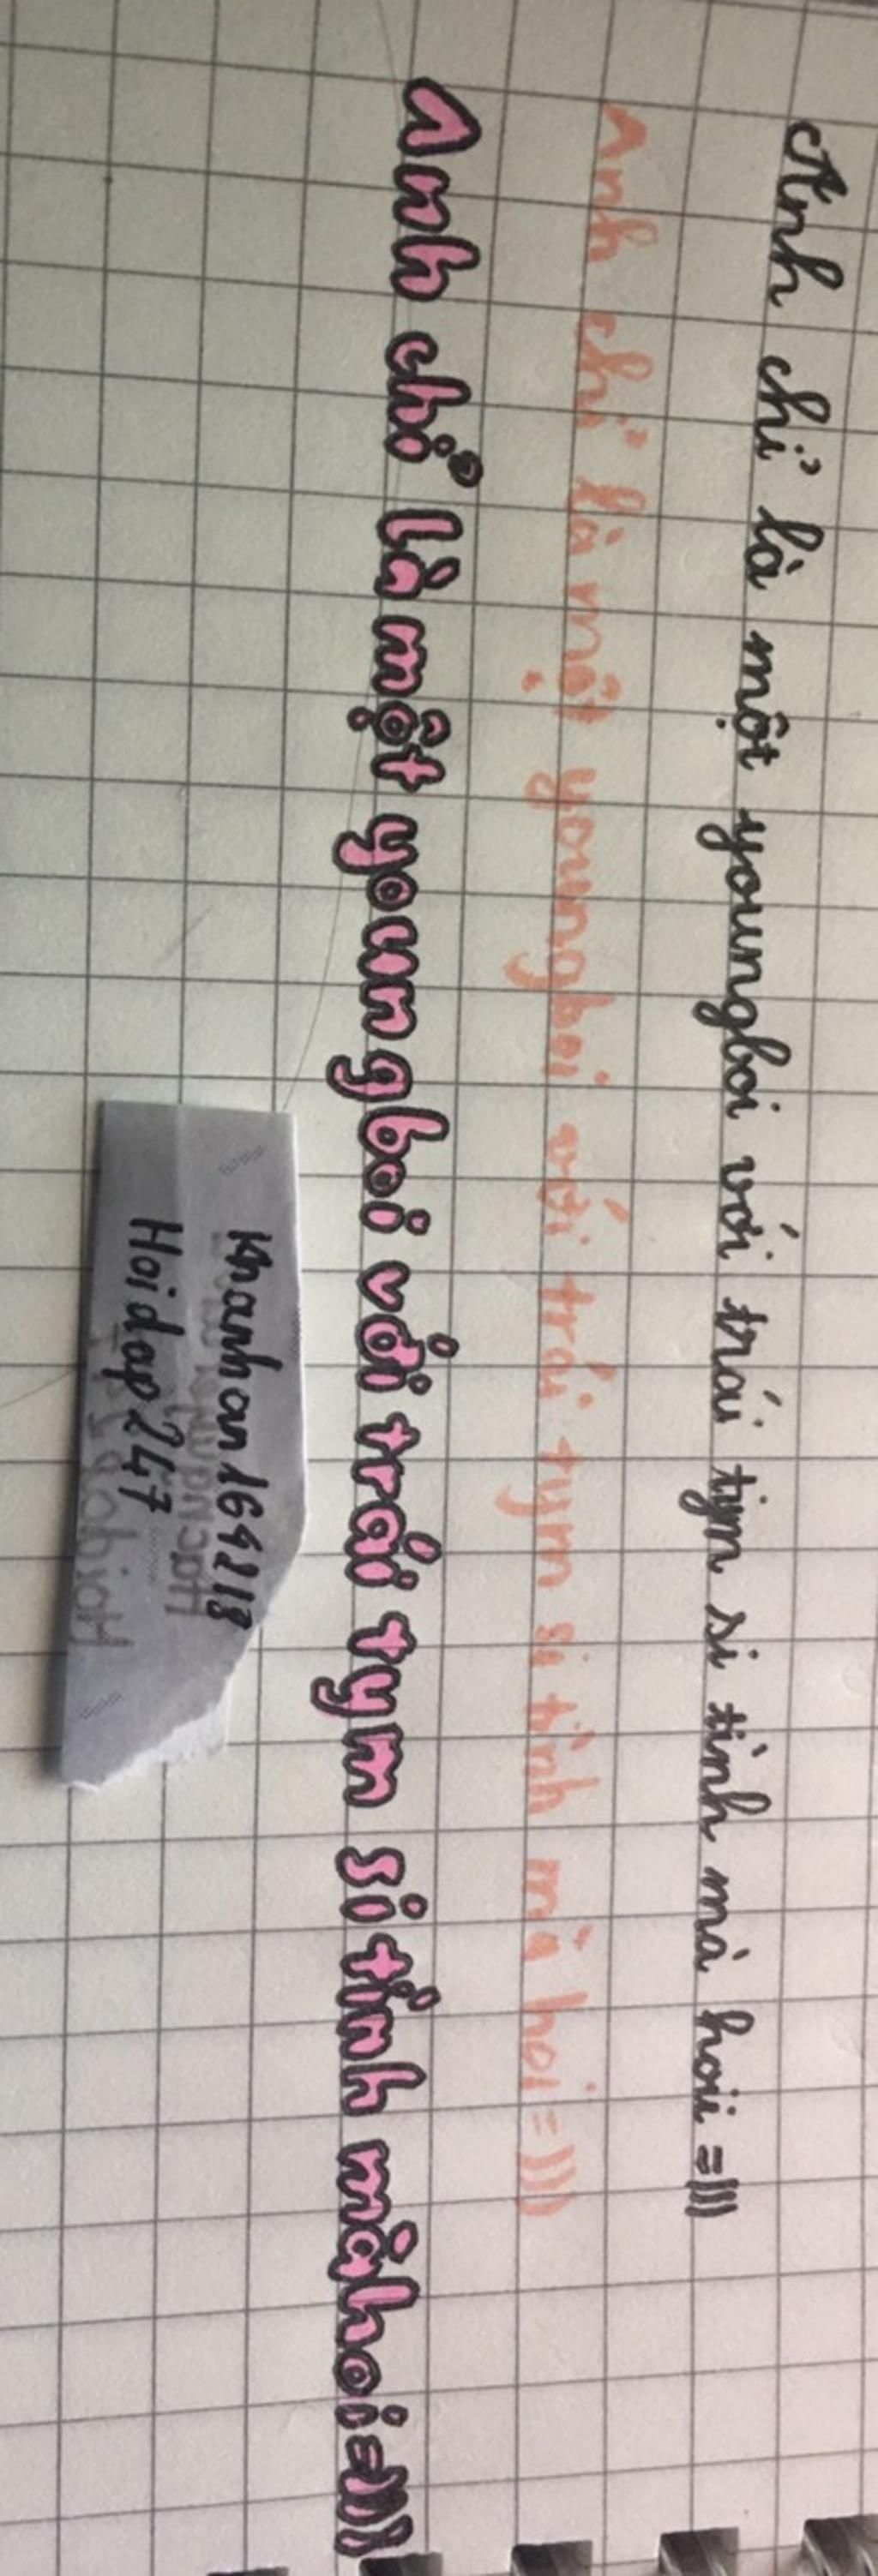 Anh chỉ là một youngboi với trái tym si tình mà hoii =)))
Anh chỉ là một youngboi với trái tym si tình mà hoi =)))
Anh chỉ là một youngboi với trái tym si tình mà hoi =)))
Khanhan164218
Hoidap247